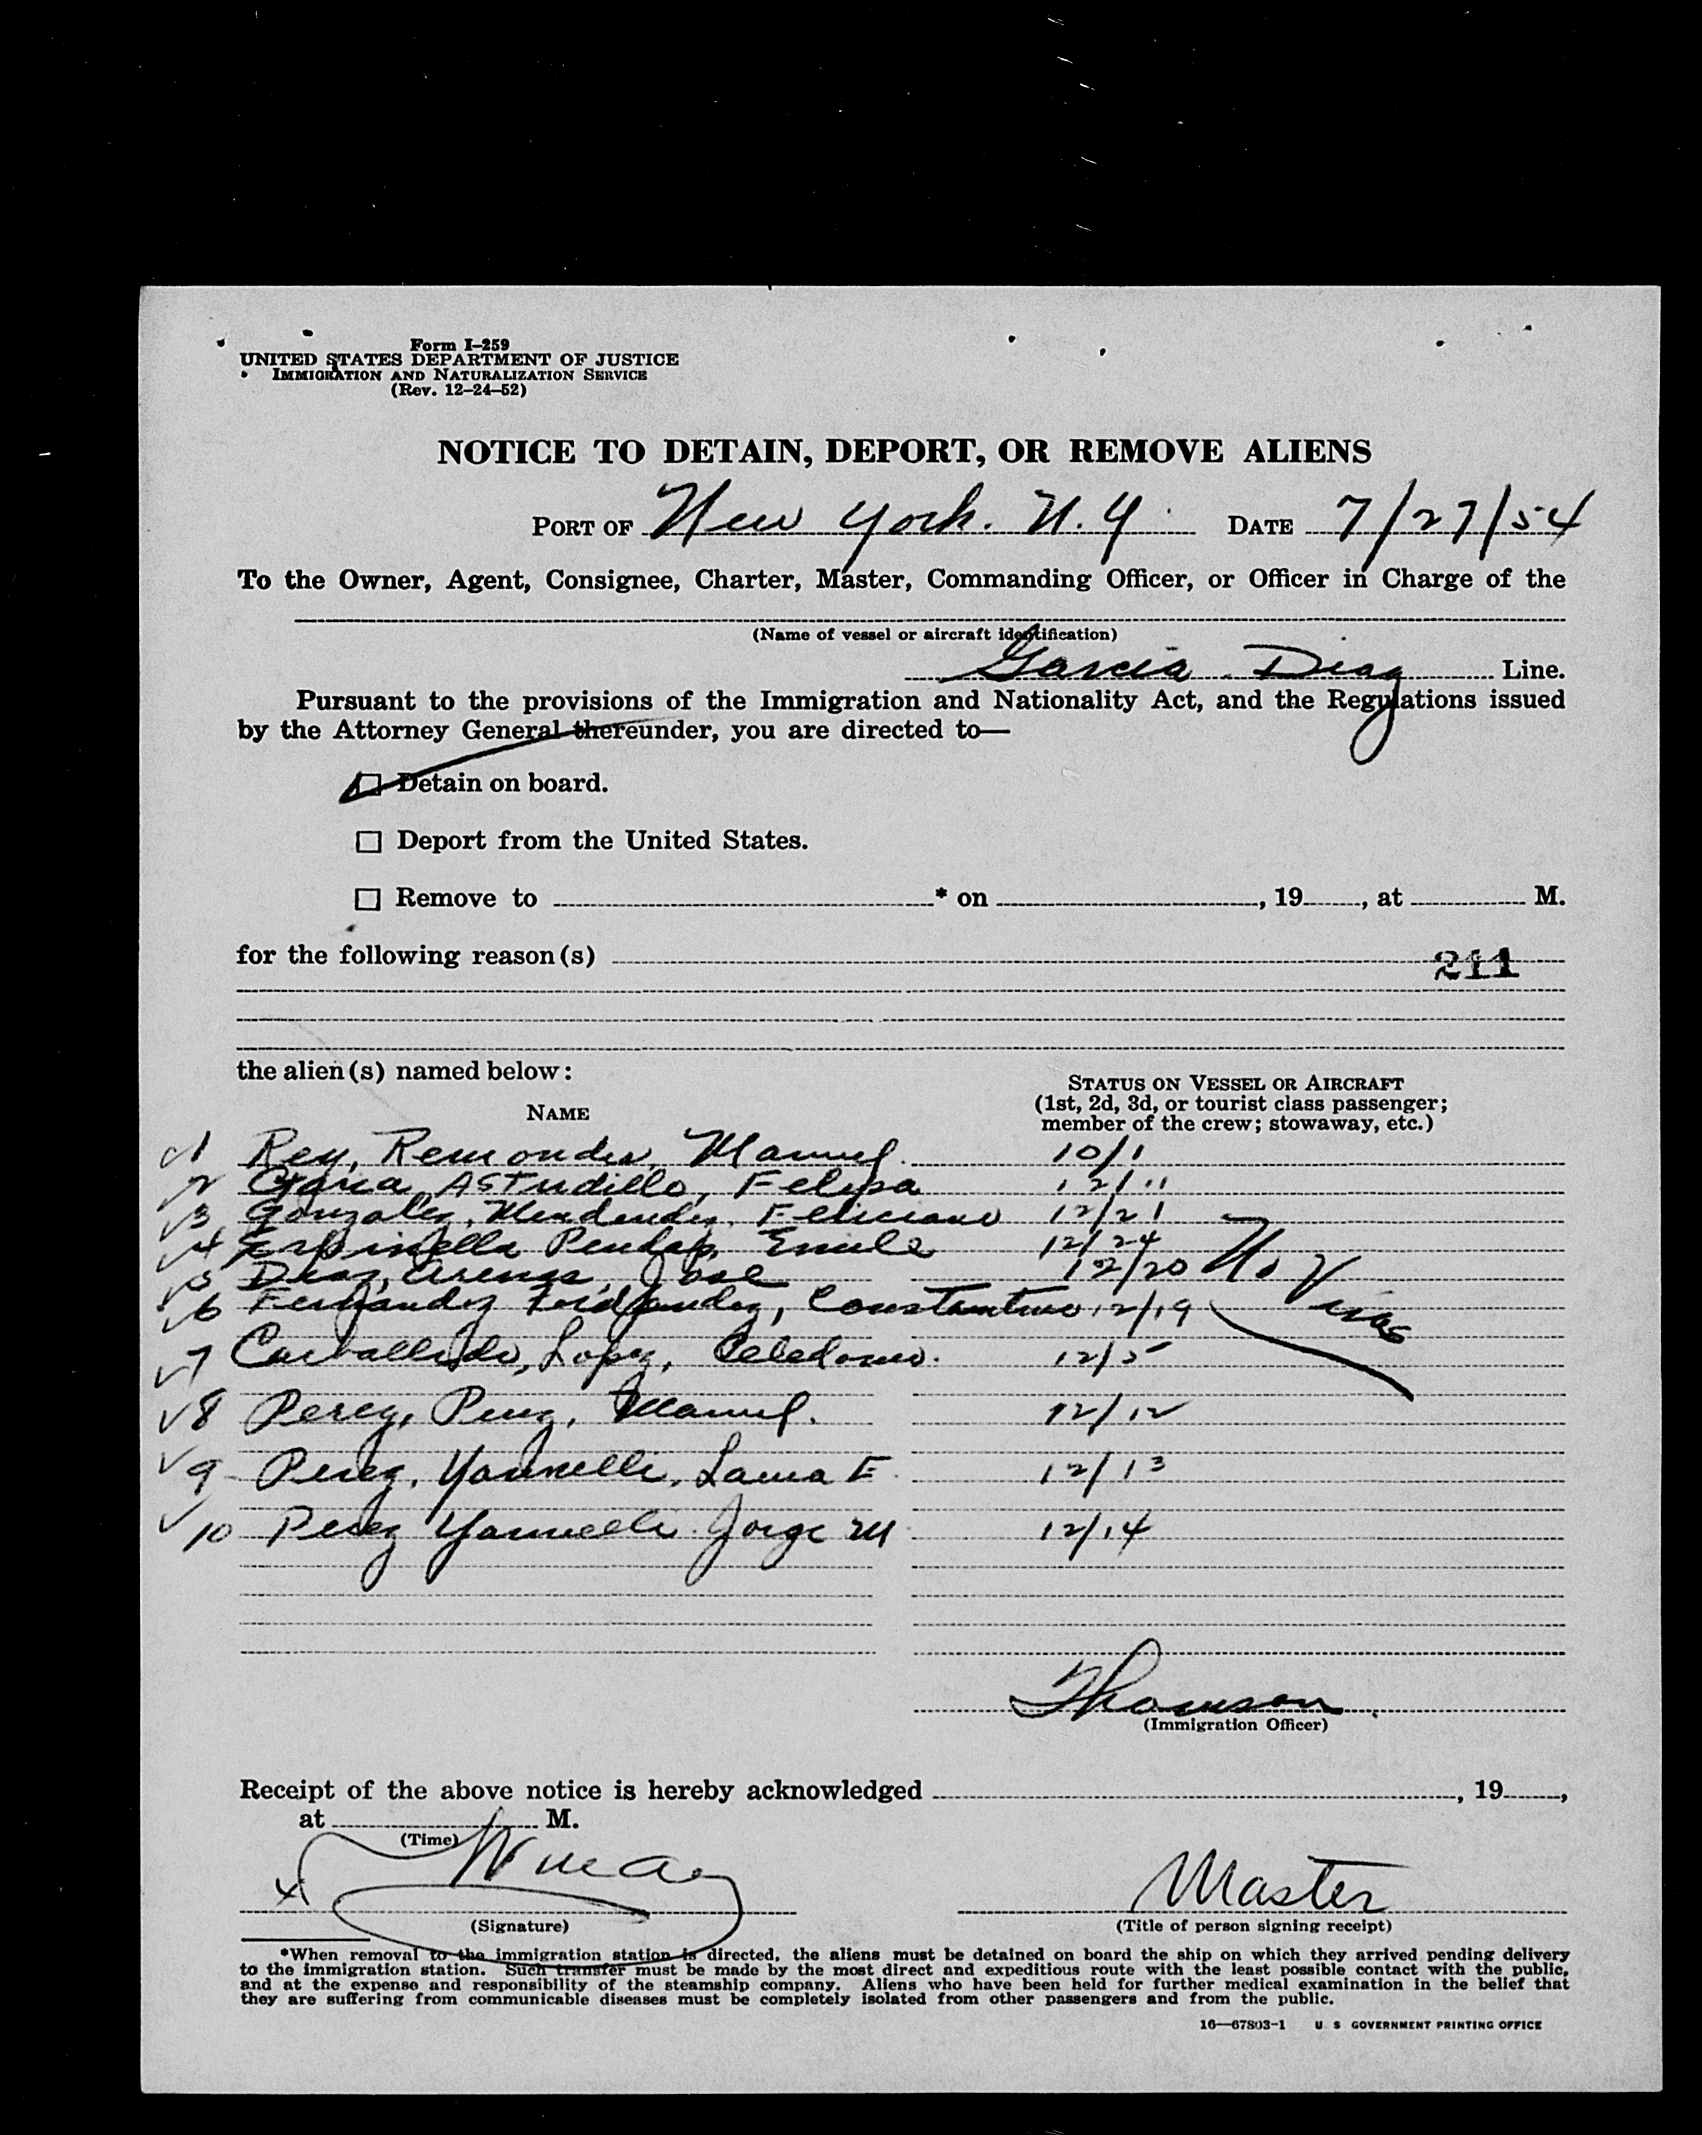 Form I-259
UNITED STATES DEPARTMENT OF JUSTICE
IMMIGRATION AND NATURALIZATION SERVICE
(Rev. 12-24-52)
NOTICE TO DETAIN, DEPORT, OR REMOVE ALIENS
PORT OF New York. N.Y. DATE 7/27/54
To the Owner, Agent, Consignee, Charter, Master, Commanding Officer, or Officer in Charge of the
(Name of vessel or aircraft identification)
Garcia Diaz Line.
Pursuant to the provisions of the Immigration and Nationality Act, and the Regulations issued
by the Attorney General thereunder, you are directed to—
Detain on board.
Deport from the United States.
Remove to * on , 19 , at M.
for the following reason(s)
211
the alien(s) named below:
NAME
STATUS ON VESSEL OR AIRCRAFT
(1st, 2d, 3d, or tourist class passenger;
member of the crew; stowaway, etc.)
1 Rey, Remondes, Manuel. 10/1
2 Garcia Astudillo, Felipa 12/11
3 Gonzalez, Mendendez, Feliciano 12/21
4 Emile 12/24
5 Diaz, Arenas, Jose 12/20 No Visas
6 Fernandez Fernandez, Constantino 12/19
7 Carballido, Lopez, Celedonio. 12/5
8 Perez, Manuel. 12/12
9 Perez, Yannelli, Laura E. 12/13
10 Perez Yannelli Jorge M 12/14
Thomson
(Immigration Officer)
Receipt of the above notice is hereby acknowledged , 19 ,
at M.
(Time)
X
Master
(Signature)
(Title of person signing receipt)
*When removal to the immigration station is directed, the aliens must be detained on board the ship on which they arrived pending delivery
to the immigration station. Such transfer must be made by the most direct and expeditious route with the least possible contact with the public,
and at the expense and responsibility of the steamship company. Aliens who have been held for further medical examination in the belief that
they are suffering from communicable diseases must be completely isolated from other passengers and from the public.
16—67803-1 U S GOVERNMENT PRINTING OFFICE